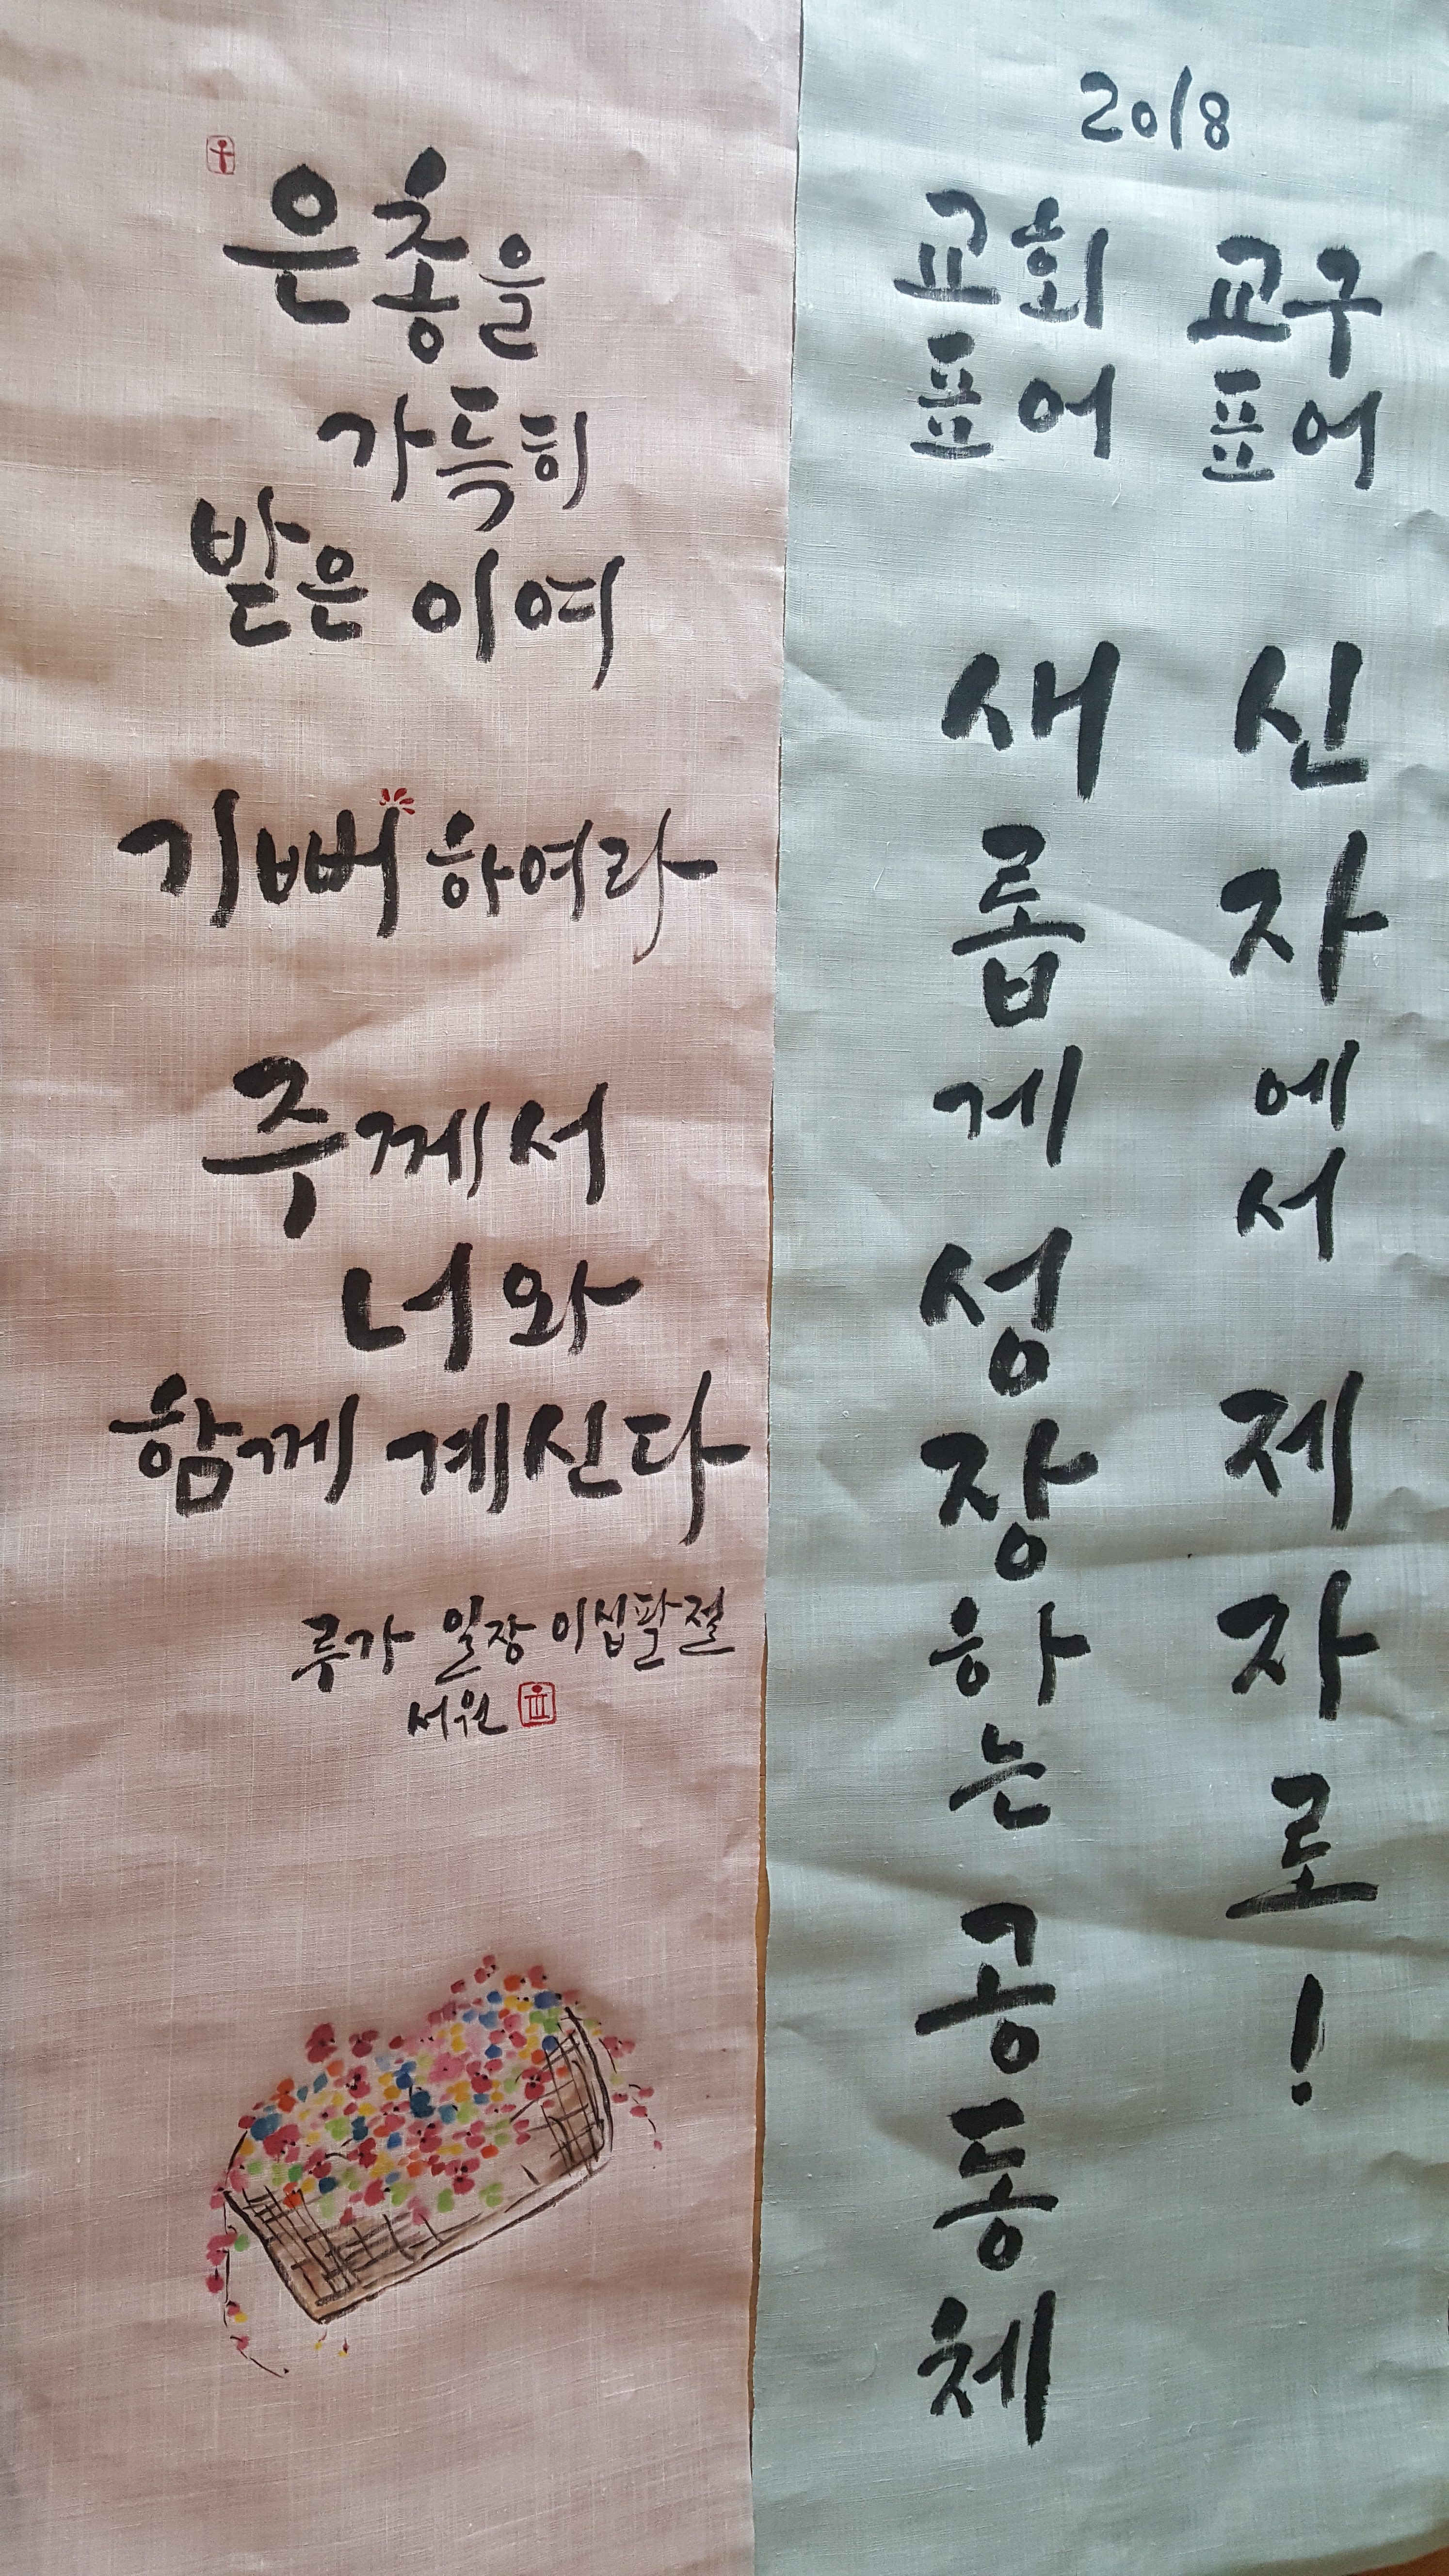 은총을
가득히
받은 이여
기뻐하여라
주께서
너와
함께 계신다
루가 일장 이십팔절
서원
2018
교구
표어
신자에서 제자로!
교회
표어
새롭게 성장하는 공동체